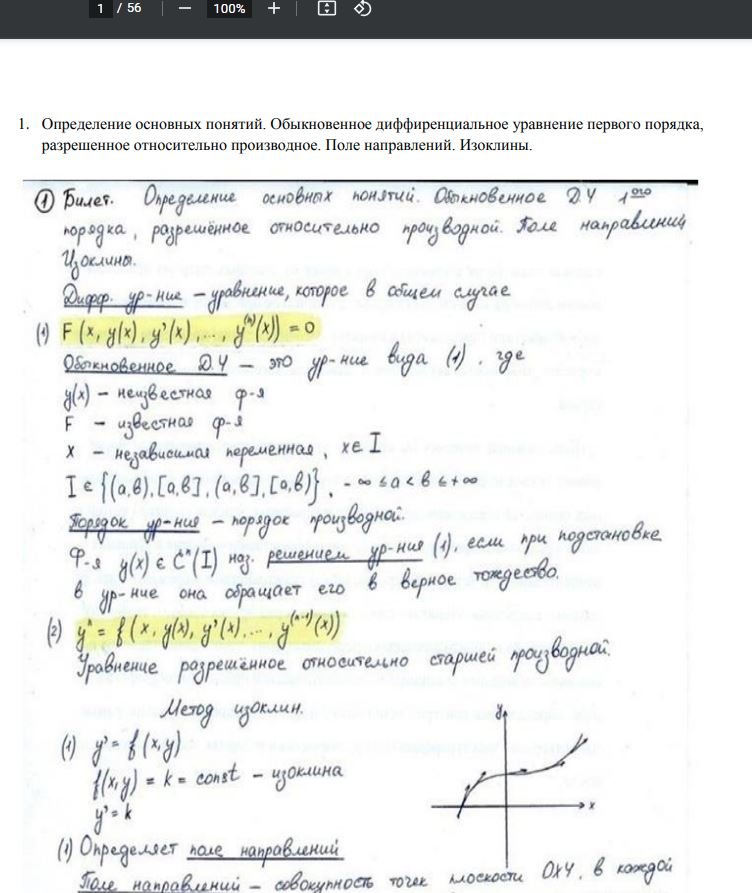 1 / 56 — 100% +
1. Определение основных понятий. Обыкновенное диффиренциальное уравнение первого порядка,
разрешенное относительно производное. Поле направлений. Изоклины.
① Билет. Определение основных понятий. Обыкновенное Д.У 1ого
порядка, разрешённое относительно производной. Поле направлений
Изоклины.
Дифф. ур-ние – уравнение, которое в общем случае
(1) F(x, y(x), y'(x), ..., y⁽ⁿ⁾(x)) = 0
Обыкновенное Д.У – это ур-ние вида (1), где
y(x) – неизвестная ф-я
F – известная ф-я
x – независимая переменная, x∈I
I ∈ {(a,b), [a,b], (a,b], [a,b)}, -∞ ≤ a < b ≤ +∞
Порядок ур-ния – порядок производной.
Ф-я y(x) ∈ Cⁿ(I) наз. решением ур-ния (1), если при подстановке
в ур-ние она обращает его в верное тождество.
(2) yⁿ = f(x, y(x), y'(x), ..., y⁽ⁿ⁻¹⁾(x))
Уравнение разрешённое относительно старшей производной.
Метод изоклин.
(1) y' = f(x,y)
f(x,y) = k = const – изоклина
y' = k
y
x
(1) Определяет поле направлений
Поле направлений – совокупность точек плоскости OXY, в каждой